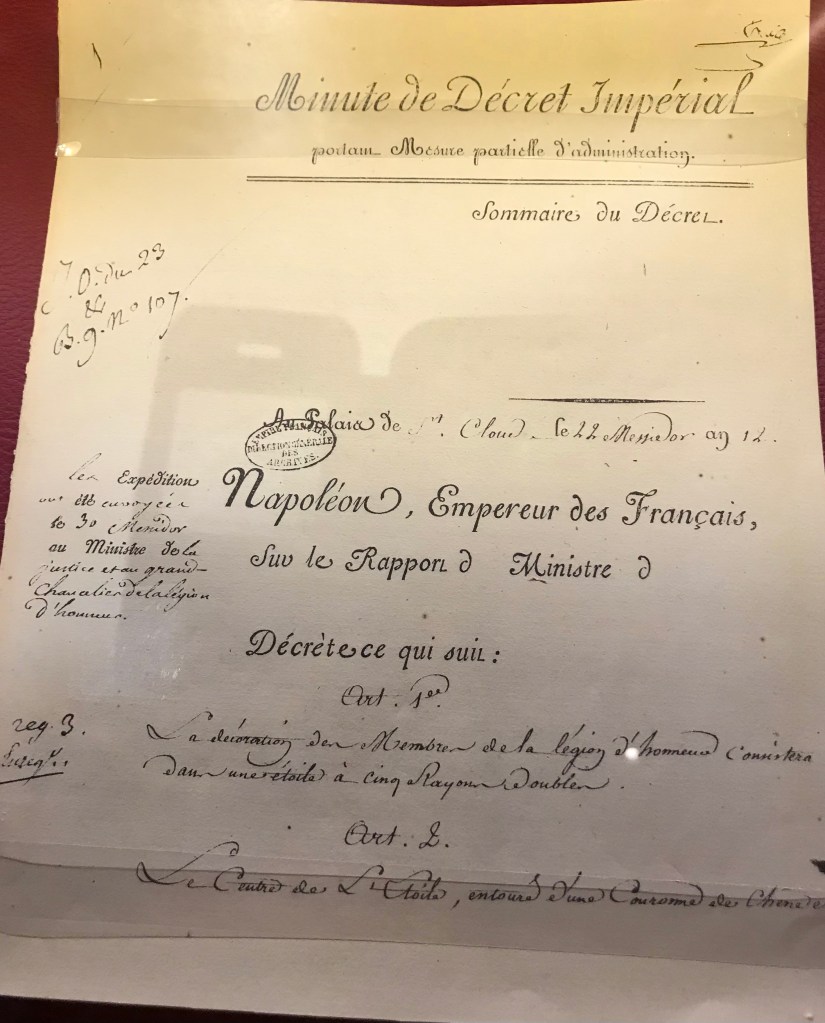 Minute de Décret Impérial
portant Mesure partielle d'administration.
Sommaire du Décret.
J. O. du 23
&
B. 9. N.° 107.
Au Palais de St. Cloud, le 22 Messidor an 12.
EMPIRE FRANÇAIS
DIRECTION GÉNÉRALE
DES
ARCHIVES.
les Expédition
ont été envoyées
le 30 Messidor
au Ministre de la
justice et au grand
Chancelier de la légion
d'honneur.
Napoléon, Empereur des Français,
Sur le Rapport d Ministre d
Décrète ce qui suit :
Art. 1er.
reg. 3.
La décoration des Membres de la légion d'honneur Consistera
dans une étoile à cinq Rayons doubles.
Art. 2.
Le Centre de L'Etoile, entouré d'une Couronne de Chêne